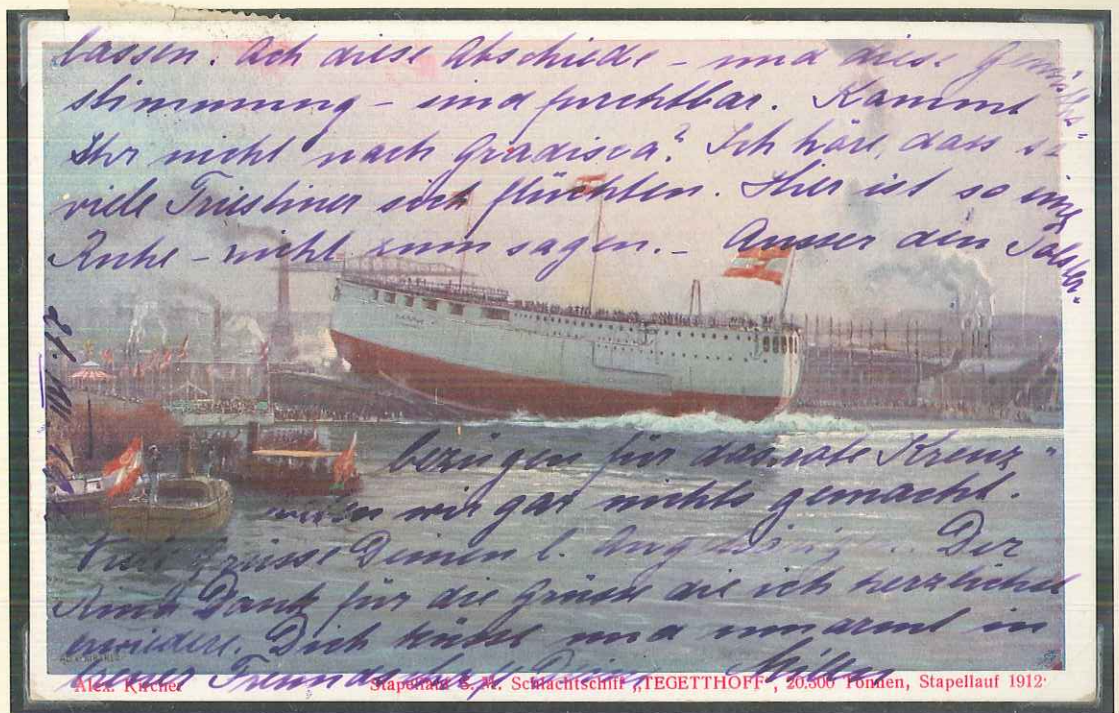 lassen. Ach diese Abschiede – und diese Gemüths-
stimmung – sind furchtbar. Kommt
Ihr nicht nach Gradisca? Ich höre, dass so
viele Triestiner sich flüchten. Hier ist so eine
Ruhe – nicht zum sagen. – Ausser den Polster-
bezügen für das rote Kreuz
wir gar nichts gemacht.
Viele Grüsse Deinen l. Angehörigen. Der
Dank für die Grüsse die ich herzlichst
erwiedere. Dich küsst und umarmt in
Freundschaft Deine
Alex. Kircher
Stapellauf S. M. Schlachtschiff „TEGETTHOFF“, 20.300 Tonnen, Stapellauf 1912